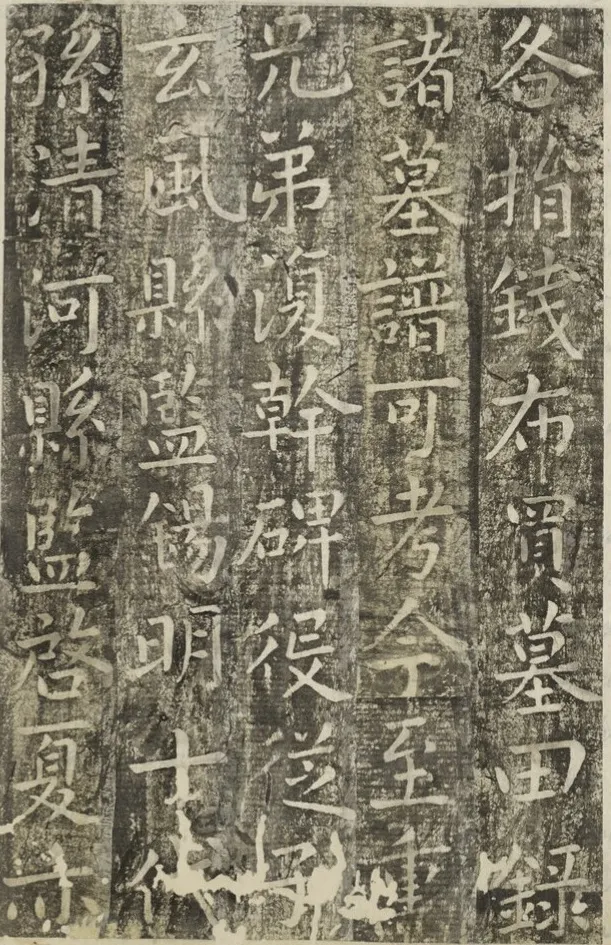 各捐錢布買墓田錄
諸墓譜可考今至重
兄弟復幹碑役從子
玄風縣監錫明士代
孫清河縣監啓夏亦